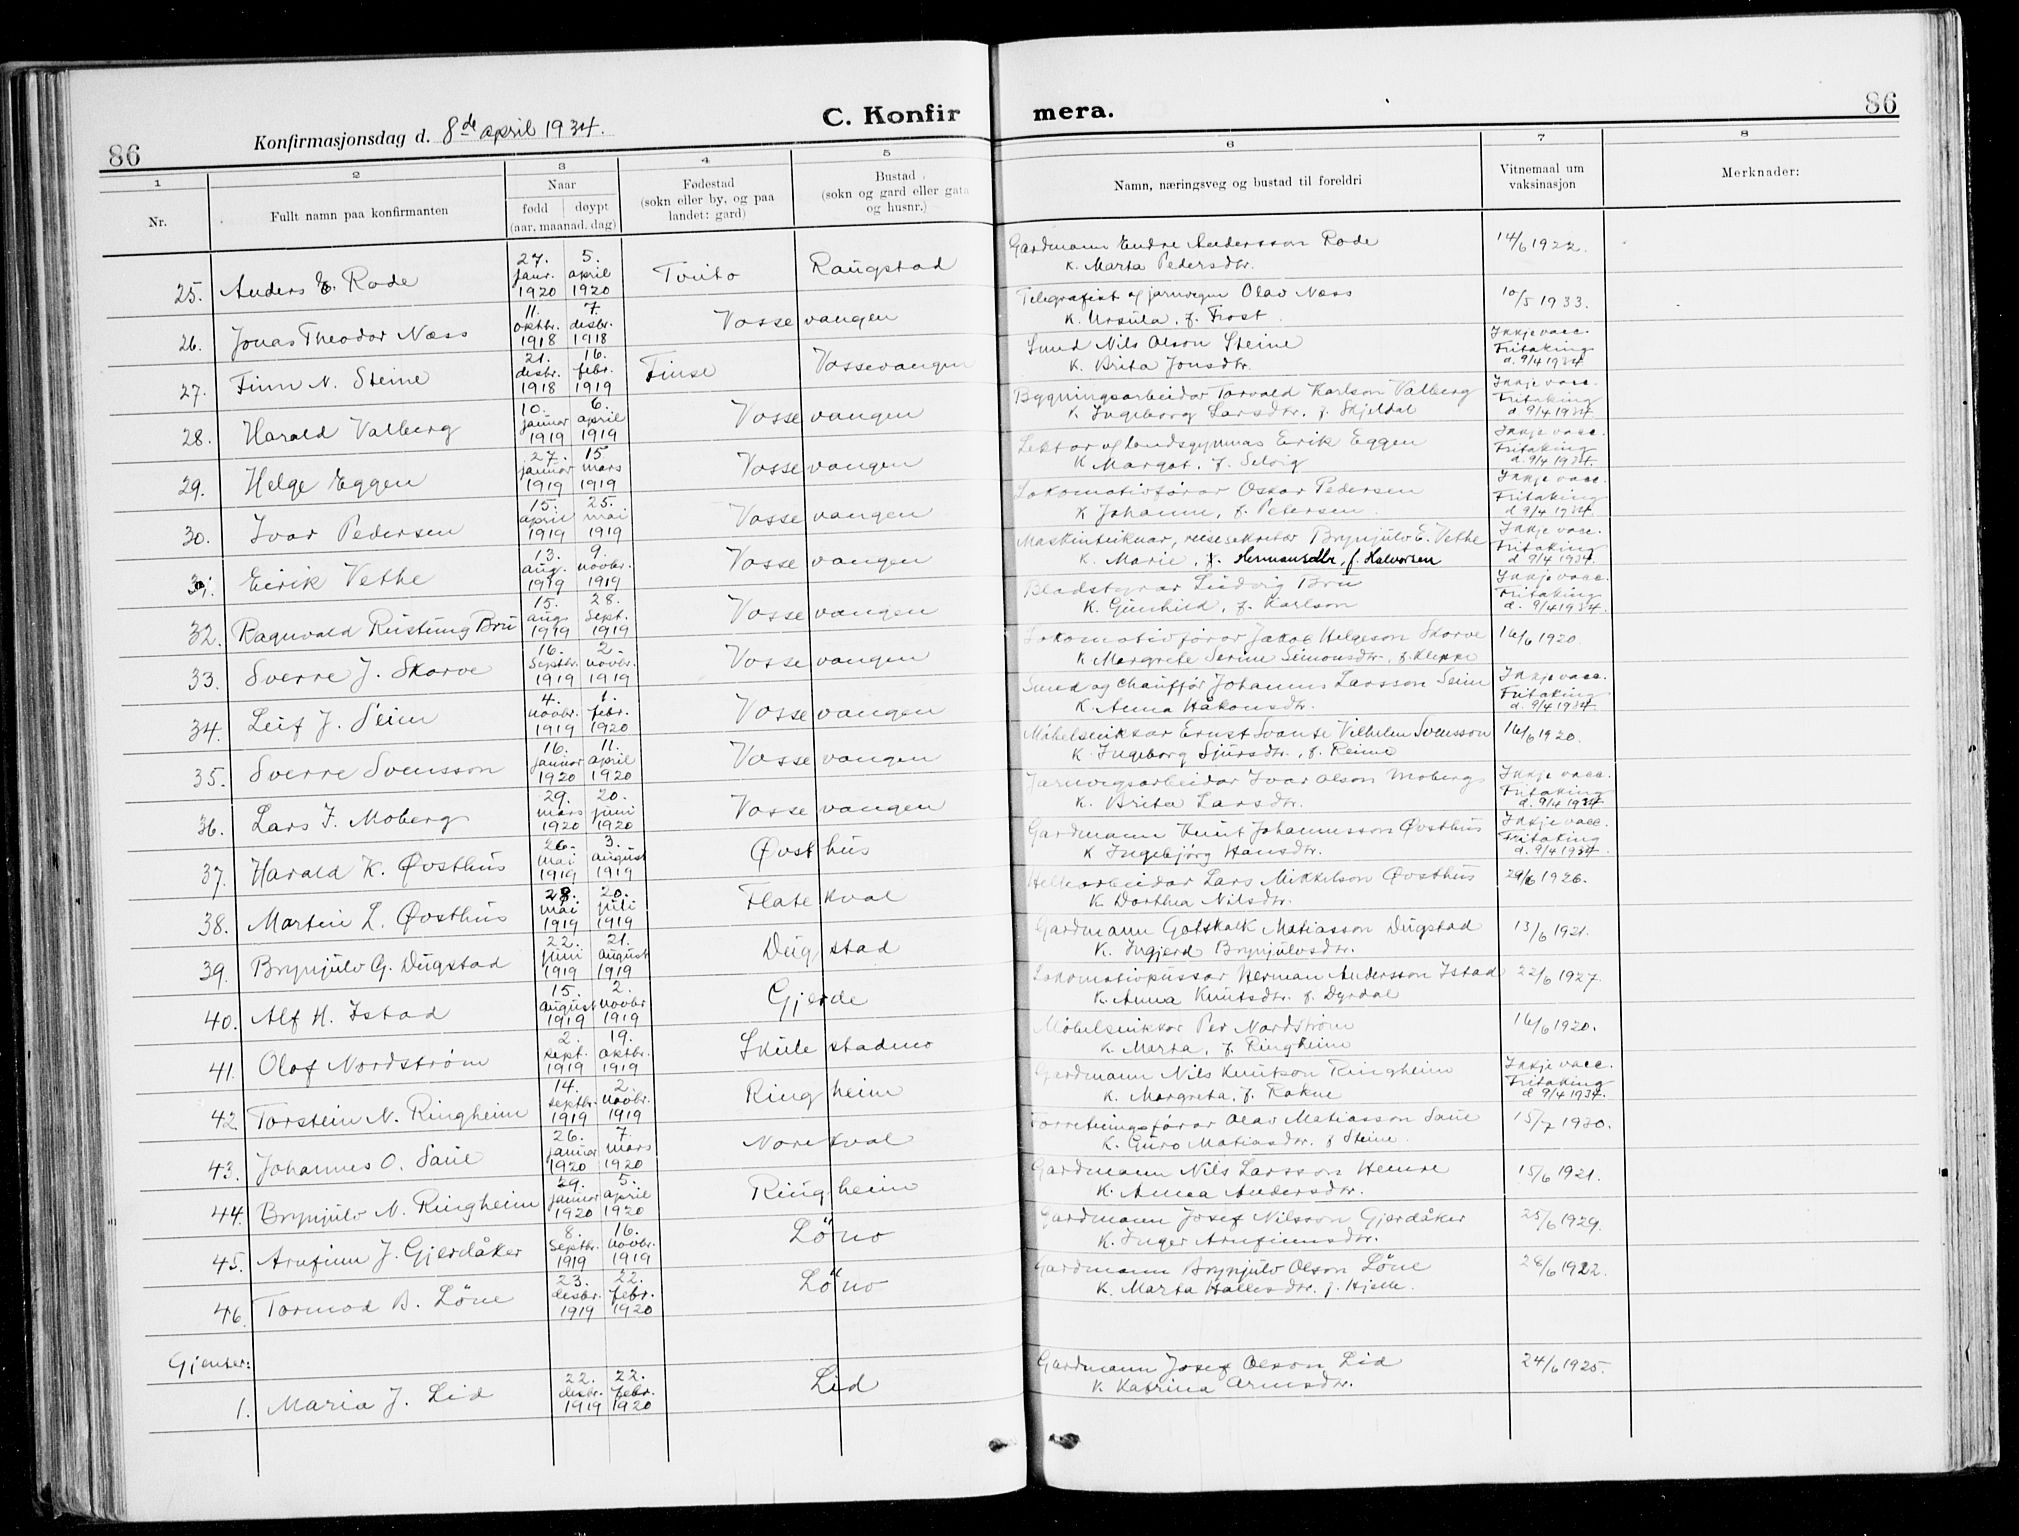 86
Konfirmasjonsdag d. 8de april 1934.
C. Konfirmera.
86
1 2 3 4 5 6 7 8
Nr.
Fullt namn paa konfirmanten
Naar
fødd døypt
(aar. maanad. dag)
Fødestad
(sokn eller by, og paa
landet: gard)
Bustad
(sokn og gard eller gata
og husnr.)
Namn, næringsveg og bustad til foreldri
Vitnemaal um
vaksinasjon
Merknader:
25. Anders E. Rode 27. janr. 1920 5. april 1920 Tvito Raugstad Gardmann Endre Andersson Rode 14/6 1922.
K. Marta Pedersdtr.
26. Jonas Theodor Næss 11. oktbr. 1918 7. desbr. 1918 Vossevangen Telegrafist og jarnvegen Olav Næss 10/5 1933.
K. Ursula, f. Frost
27. Finn N. Steine 21. desbr. 1918 16. febr. 1919 Finse Vossevangen Smed Nils Olson Steine Ikkje vacc. Fritaking d. 9/4 1934
K. Brita Jonsdtr.
28. Harald Valberg 10. januar 1919 6. april 1919 Vossevangen Bygningsarbeidar Torvald Karlson Valberg Ikkje vacc. Fritaking d 9/4 1934
K Ingeborg Larsdtr. f. Skjeldal
29. Helge Eggen 27. januar 1919 15. mars 1919 Vossevangen Lektor og landsgymnas Erik Eggen Ikkje vacc. Fritaking d. 9/4 1934.
K Margot, f. Selvig
30. Ivar Pedersen 15. april 1919 25. mai 1919 Vossevangen Lokomotivførar Oskar Pedersen Ikkje vacc. Fritaking d 9/4 1934.
K Johanne, f. Petersen
31. Eirik Vethe 13. aug. 1919 9. novbr. 1919 Vossevangen Maskinteiknar, reisesekretær Brynjulv E. Vethe Ikkje vacc. Fritaking d 9/4 1934
K. Marie, f. Hermansdtr, f. Halvorsen
32. Ragnvald Rustung Bru 15. aug. 1919 28. Sept. 1919 Vossevangen Bladstyrar Ludvig Bru Ikkje vacc. Fritaking d. 9/4 1934.
K. Gunhild, f. Karlson
33. Sverre J. Skorve 16. Septbr. 1919 2. novbr. 1919 Vossevangen Lokomotivførar Jakob Helgeson Skorve 16/6 1920.
K. Margrete Serine Simonsdtr, f. Kleppe
34. Leif J. Seim 4. novbr. 1919 1. febr. 1920 Vossevangen Smed og Chauffør Johannes Larsson Seim Ikkje vacc. Fritaking d. 9/4 1934.
K. Anna Håkonsdtr.
35. Sverre Svensson 16. januar 1920 11. april 1920 Vossevangen Møbelsnikkar Ernst Svante Vilhelm Svensson 16/6 1920.
K. Ingeborg Sjursdtr., f. Reime
36. Lars I. Moberg 29. mars 1920 20. juni 1920 Vossevangen Jarnvegsarbeidar Ivar Olson Moberg Ikkje vacc. Fritaking d. 9/4 1934
K. Brita Larsdtr.
37. Harald K. Øvsthus 26. mai 1919 3. august 1919 Øvsthus Gardmann Knut Johannesson Øvsthus Ikkje vacc. Fritaking d. 9/4 1934.
K Ingebjørg Hansdtr.
38. Martin L. Øvsthus 28. mai 1919 20. juli 1919 Flatekval Hellearbeidar Lars Mikkelson Øvsthus 29/6 1926.
K. Dorthea Nilsdtr.
39. Brynjulv G. Dugstad 22. juni 1919 21. august 1919 Dugstad Gardmann Gotskalk Matiasson Dugstad 13/6 1921.
K. Ingjerd Brynjulvsdtr.
40. Alf H. Istad 15. august 1919 2. novbr 1919 Gjerde Lokomotivpussar Herman Andersson Istad 22/6 1927.
K. Anna Knutsdtr. f. Dyrdal
41. Olof Nordstrøm 2. sept. 1919 19. oktbr. 1919 Skulestadmo Møbelsnikkar Per Nordstrøm 16/6 1920.
K. Marta, f. Ringheim
42. Torstein N. Ringheim 14. septbr. 1919 2. novbr. 1919 Ringheim Gardmann Nils Knutson Ringheim Ikkje vacc. Fritaking d 9/4 1934.
K. Margreta, f. Rokne
43. Johannes O. Saue 26. januar 1920 7. mars 1920 Norekval Forretningsførar Olav Matiasson Saue 15/7 1930.
K. Guro Matiasdtr. f Steine.
44. Brynjulv N. Ringheim 29. januar 1920 5. april 1920 Ringheim Gardmann Nils Larsson Hemre 15/6 1921.
K. Anna Andersdtr.
45. Arnfinn J. Gjerdåker 8. Septbr. 1919 16. novbr. 1919 Löno Gardmann Josef Nilsson Gjerdåker 25/6 1929.
K. Inger Arnfinnsdtr.
46. Tormod B. Löne 23. desbr. 1919 22. febr. 1920 Löno Gardmann Brynjulv Olson Löne 28/6 1922.
K. Marta Hallesdtr. f. Hjelle.
Gjenter:
1. Maria J. Lid 22. desbr. 1919 22. febr. 1920 Lid Gardmann Josef Olson Lid 24/6 1925.
K. Katrina Arnesdtr.